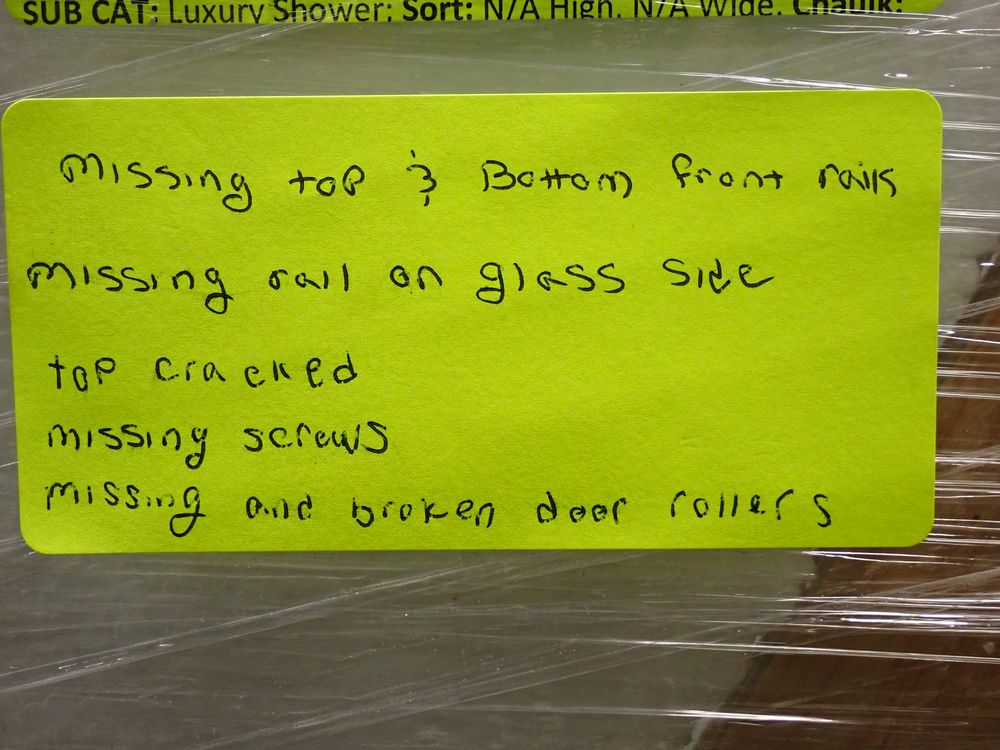 SUB CAT: Luxury Shower: Sort: N/A High, N/A Wide, Chaulk:
Missing top & Bottom front rails
missing rail on glass side
top cracked
missing screws
missing and broken door rollers